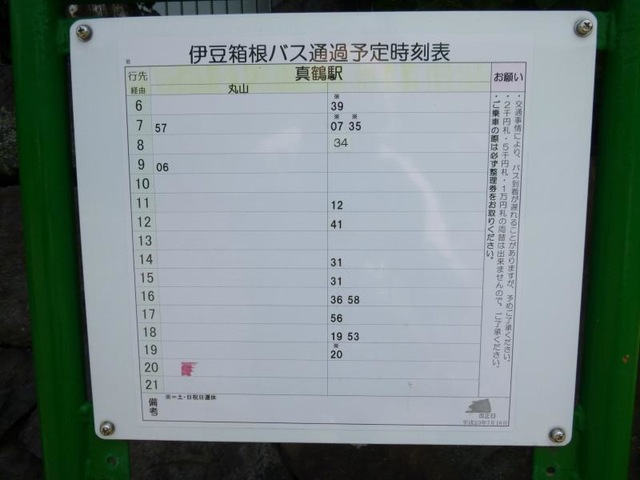 伊豆箱根バス通過予定時刻表
※
行先 真鶴駅 お願い
経由 丸山
※
6 39
※ ※
7 57 07 35
8 34
9 06
10
11 12
12 41
13
14 31
15 31
16 36 58
17 56
18 19 53
※
19 20
20
21
備考 ※=土・日祝日運休
・交通事情により、バス到着が遅れることがありますが、予めご了承ください。
・2千円札・5千円札・1万円札の両替は出来ませんので、ご了承ください。
・ご乗車の際は必ず整理券をお取りください。
改正日
平成23年7月16日